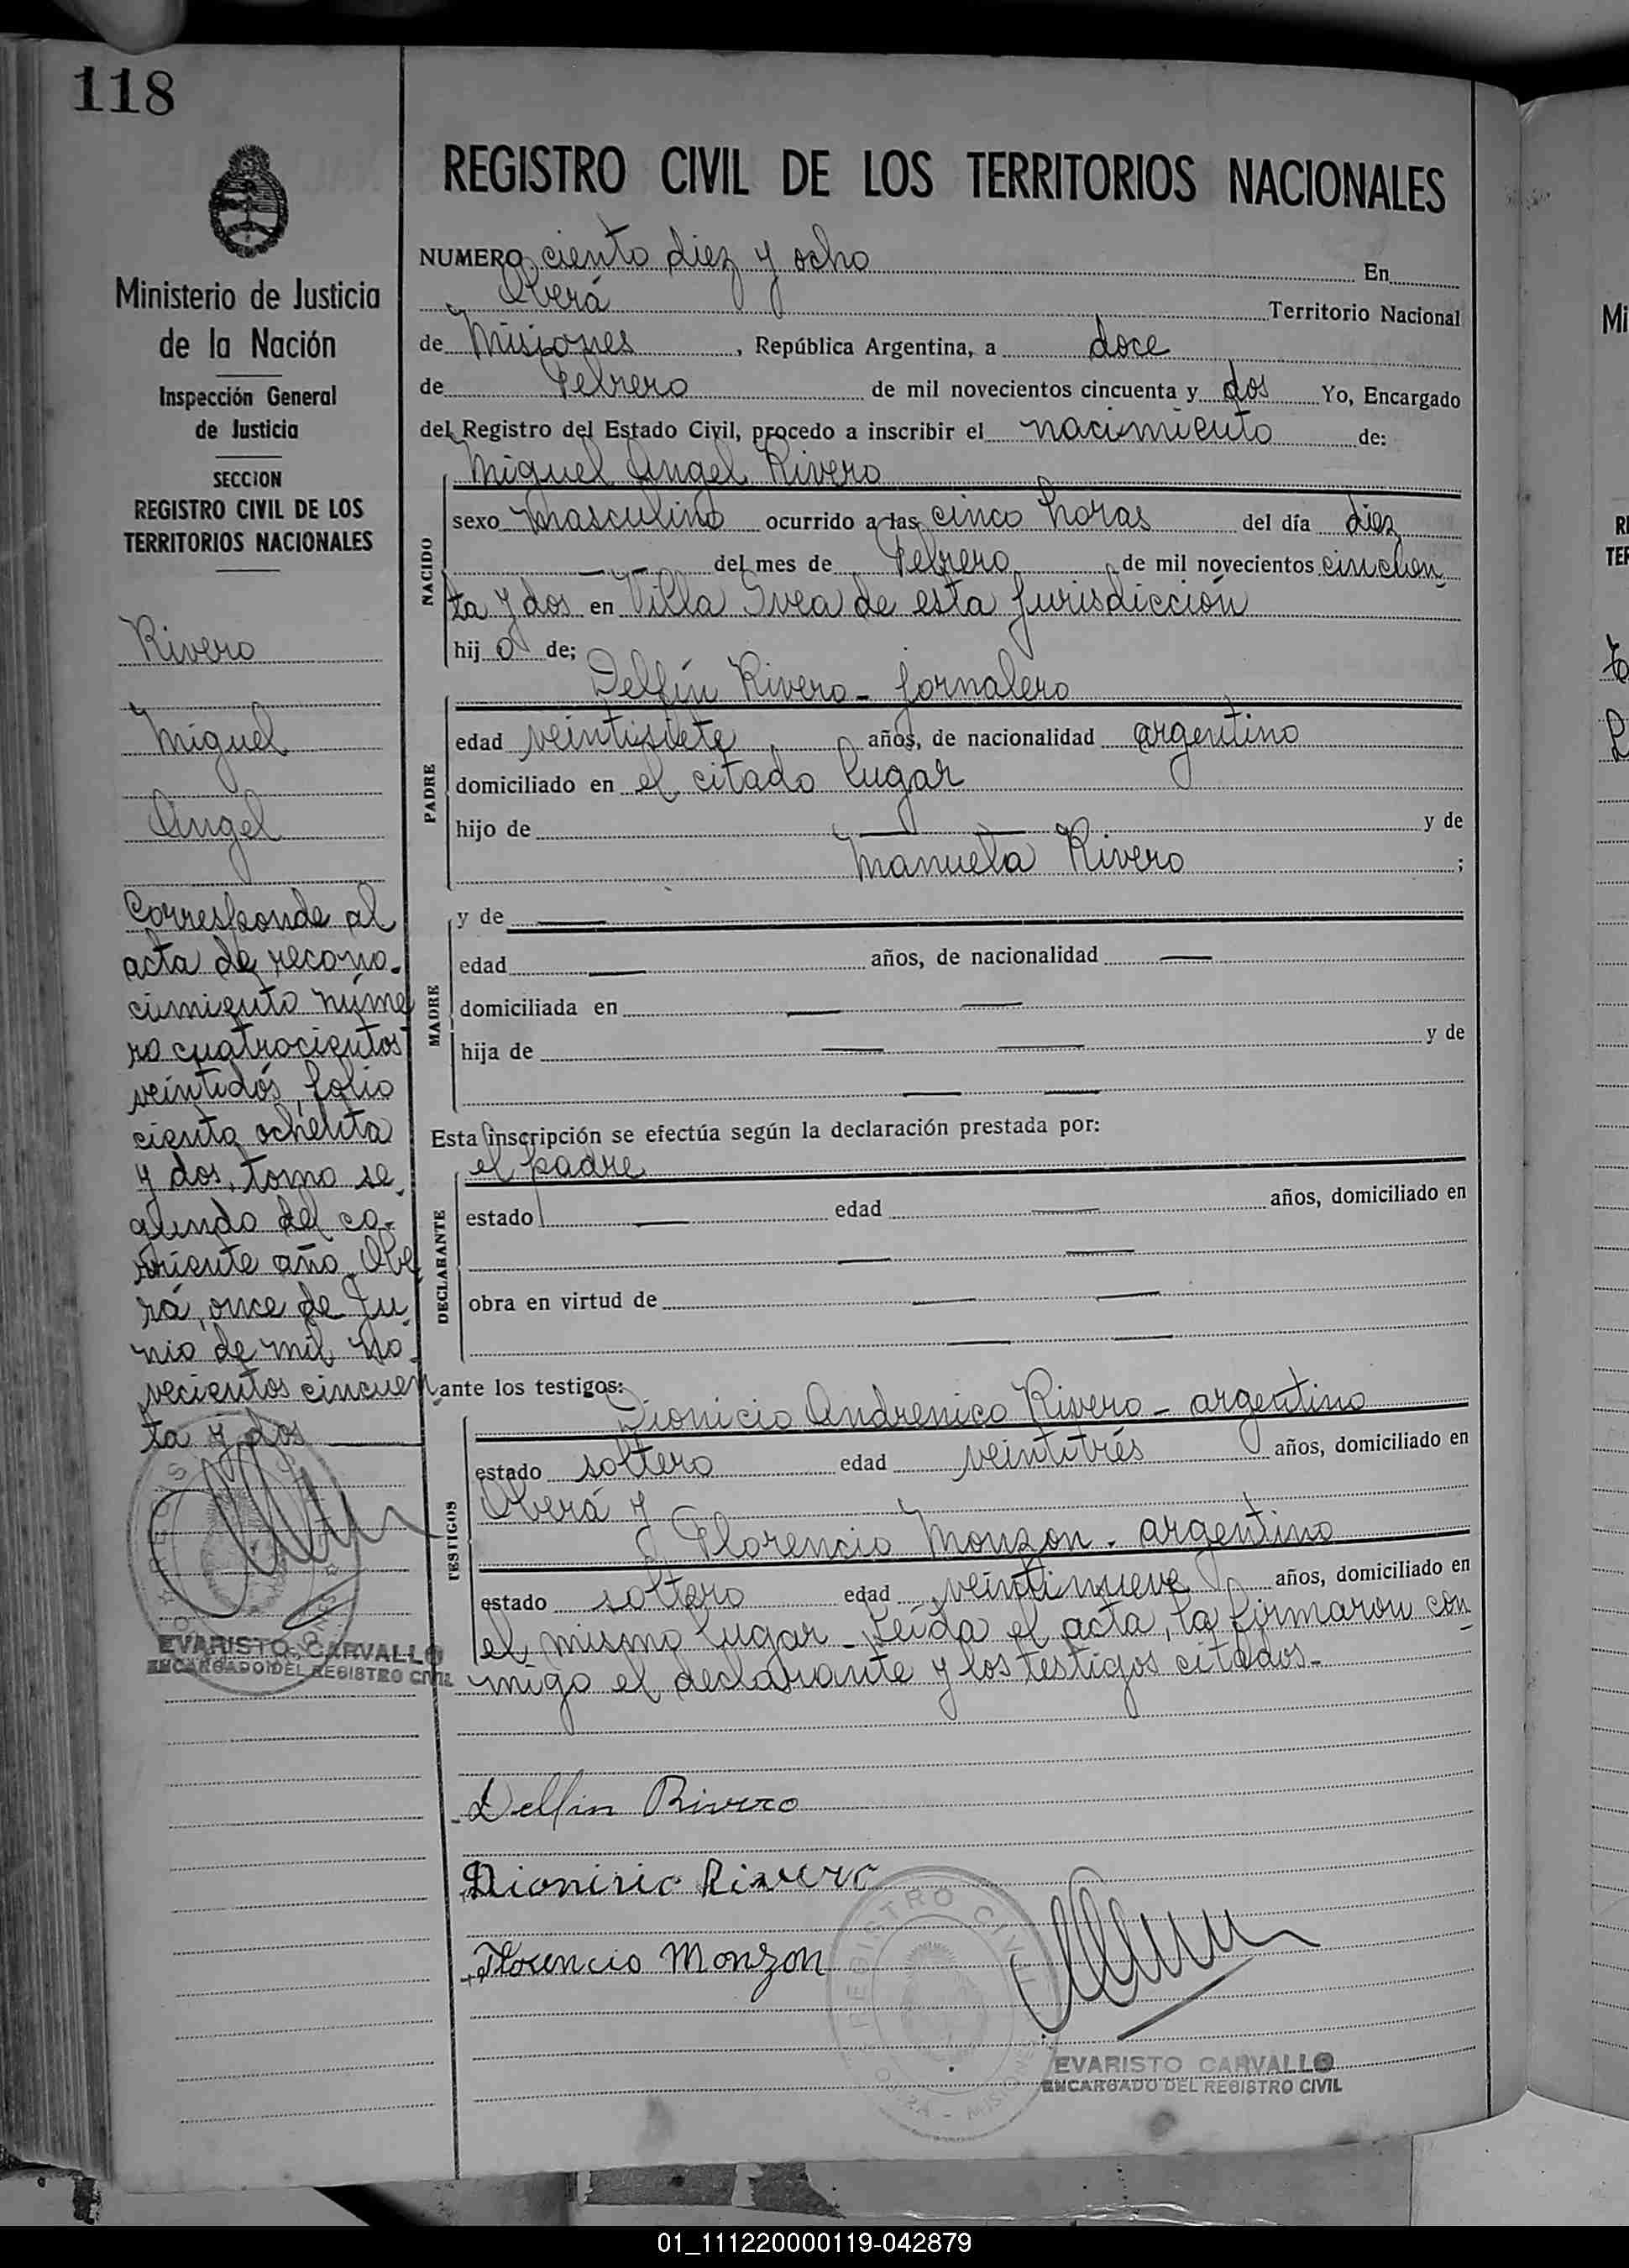 118
Ministerio de Justicia
de la Nación
Inspección General
de Justicia
SECCION
REGISTRO CIVIL DE LOS
TERRITORIOS NACIONALES
Rivero
Miguel
Angel
Corresponde al
acta de recono-
cimiento núme
ro cuatrocientos
veintidós, folio
ciento ochenta
y dos, tomo se-
gundo del co-
rriente año. Obe
rá, once de Ju
nio de mil no-
vecientos cincuen
ta y dos
EVARISTO CARVALLO
ENCARGADO DEL REGISTRO CIVIL
REGISTRO CIVIL DE LOS TERRITORIOS NACIONALES
NUMERO ciento diez y ocho En
Oberá Territorio Nacional
de Misiones, República Argentina, a doce
de Febrero de mil novecientos cincuenta y dos Yo, Encargado
del Registro del Estado Civil, procedo a inscribir el nacimiento de:
NACIDO
Miguel Angel Rivero
sexo Masculino ocurrido a las cinco horas del día diez
del mes de Febrero de mil novecientos cinchen
ta y dos en Villa Svea de esta jurisdicción
hij o de;
PADRE
Delfín Rivero - jornalero
edad veintisiete años, de nacionalidad argentino
domiciliado en el citado lugar
hijo de y de
Manuela Rivero ;
MADRE
y de
edad años, de nacionalidad
domiciliada en
hija de y de
Esta inscripción se efectúa según la declaración prestada por:
DECLARANTE
el padre
estado edad años, domiciliado en
obra en virtud de
ante los testigos:
TESTIGOS
Dionicio Andrenico Rivero - argentino
estado soltero edad veintitrés años, domiciliado en
Oberá y
Florencio Monzon - argentino
estado soltero edad veintinueve años, domiciliado en
el mismo lugar - Leída el acta, la firmaron con
migo el declarante y los testigos citados.-
Delfin Rivero
Dionisio Rivero
Florencio Monzon
REGISTRO CIVIL
MISIONES
EVARISTO CARVALLO
ENCARGADO DEL REGISTRO CIVIL
01_111220000119-042879